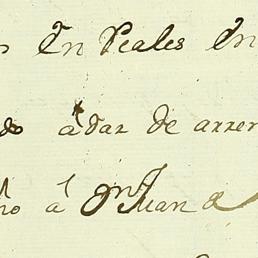 En Reales En
adar de arren
no a Dn Juan